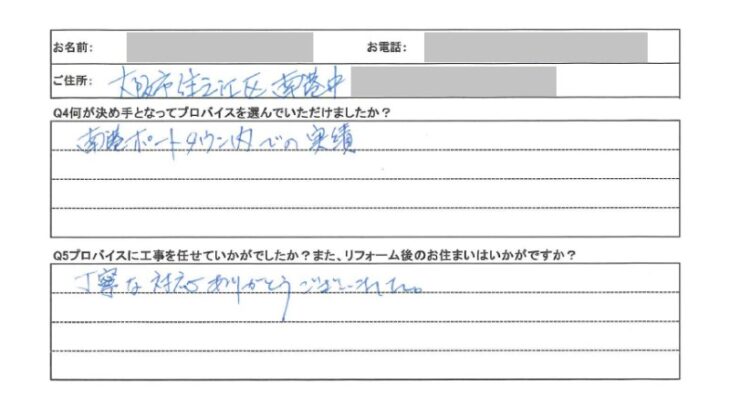 お名前: お電話:
ご住所: 大阪市住之江区南港中
Q4何が決め手となってプロバイスを選んでいただけましたか？
南港ポートタウン内での実績
Q5プロバイスに工事を任せていかがでしたか？また、リフォーム後のお住まいはいかがですか？
丁寧な対応ありがとうございました。